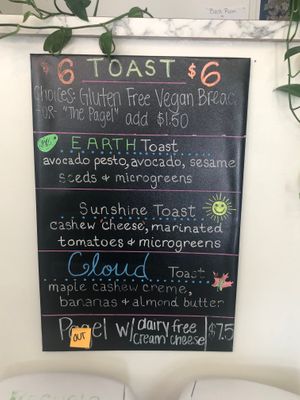 $6 TOAST $6
Choices: Gluten Free Vegan Bread
-OR- "The Pagel" add $1.50
EARTH Toast
avocado pesto, avocado, sesame
seeds & microgreens
Sunshine Toast
cashew 'cheese', marinated
tomatoes & microgreens
Cloud Toast
maple cashew creme,
bananas & almond butter
Pagel w/ dairy free cream cheese $7.5
OUT